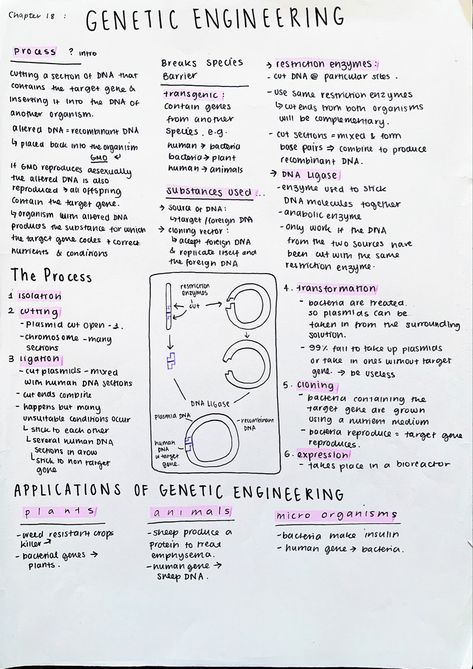 Chapter 18 :
GENETIC ENGINEERING
process ? intro
cutting a section of DNA that
contains the target gene &
inserting it into the DNA of
another organism.
altered DNA = recombinant DNA
↳ placed back into the organism
GMO
if GMO reproduces asexually
the altered DNA is also
reproduced → all offspring
contain the target gene.
↳ organism with altered DNA
produces the substance for which
the target gene codes + correct
nutrients & conditions
Breaks species
Barrier
transgenic:
contain genes
from another
species. e.g.
human → bacteria
bacteria → plant
human → animals
substances used...
→ source of DNA:
↳ target/foreign DNA
→ cloning vector:
↳ accept foreign DNA
& replicate itself and
the foreign DNA
→ restriction enzymes:
- cut DNA @ particular sites.
- use same restriction enzymes
↳ cut ends from both organisms
will be complementary.
- cut sections = mixed & form
base pairs ⇒ combine to produce
recombinant DNA.
→ DNA Ligase
- enzyme used to stick
DNA molecules together
- anabolic enzyme
- only work if the DNA
from the two sources have
been cut with the same
restriction enzyme.
The Process
1 isolation
2 cutting
- plasmid cut open - 1.
- chromosome - many
sections
3 ligation
- cut plasmids - mixed
with human DNA sections
- cut ends combine
- happens but many
unsuitable conditions occur
↳ stick to each other
↳ several human DNA
sections in a row
↳ stick to non target
gene
restriction
enzymes
cut
DNA LIGASE
plasmid DNA
-recombinant
DNA
human
DNA
w target
gene.
4. transformation
- bacteria are treated
so plasmids can be
taken in from the surrounding
solution.
- 99% fail to take up plasmids
or take in ones without target
gene. → be useless
5. cloning
- bacteria containing the
target gene are grown
using a nutrient medium
- bacteria reproduce = target gene
reproduces.
6. expression
- takes place in a bioreactor
APPLICATIONS OF GENETIC ENGINEERING
plants
- weed resistant crops
killer
- bacterial genes →
plants.
animals
- sheep produce a
protein to treat
emphysema.
- human gene →
sheep DNA.
micro organisms
- bacteria make insulin
- human gene → bacteria.